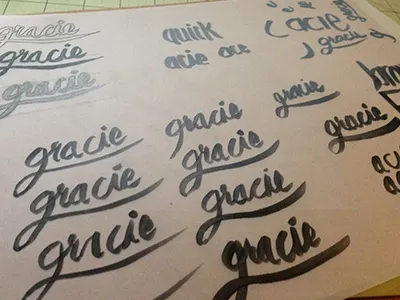 gracie
gracie
gracie
quick
acie ace
acie
gracie
gracie
gracie
gracie
gracie
gracie
gracie
gracie
gracie
gracie
gracie